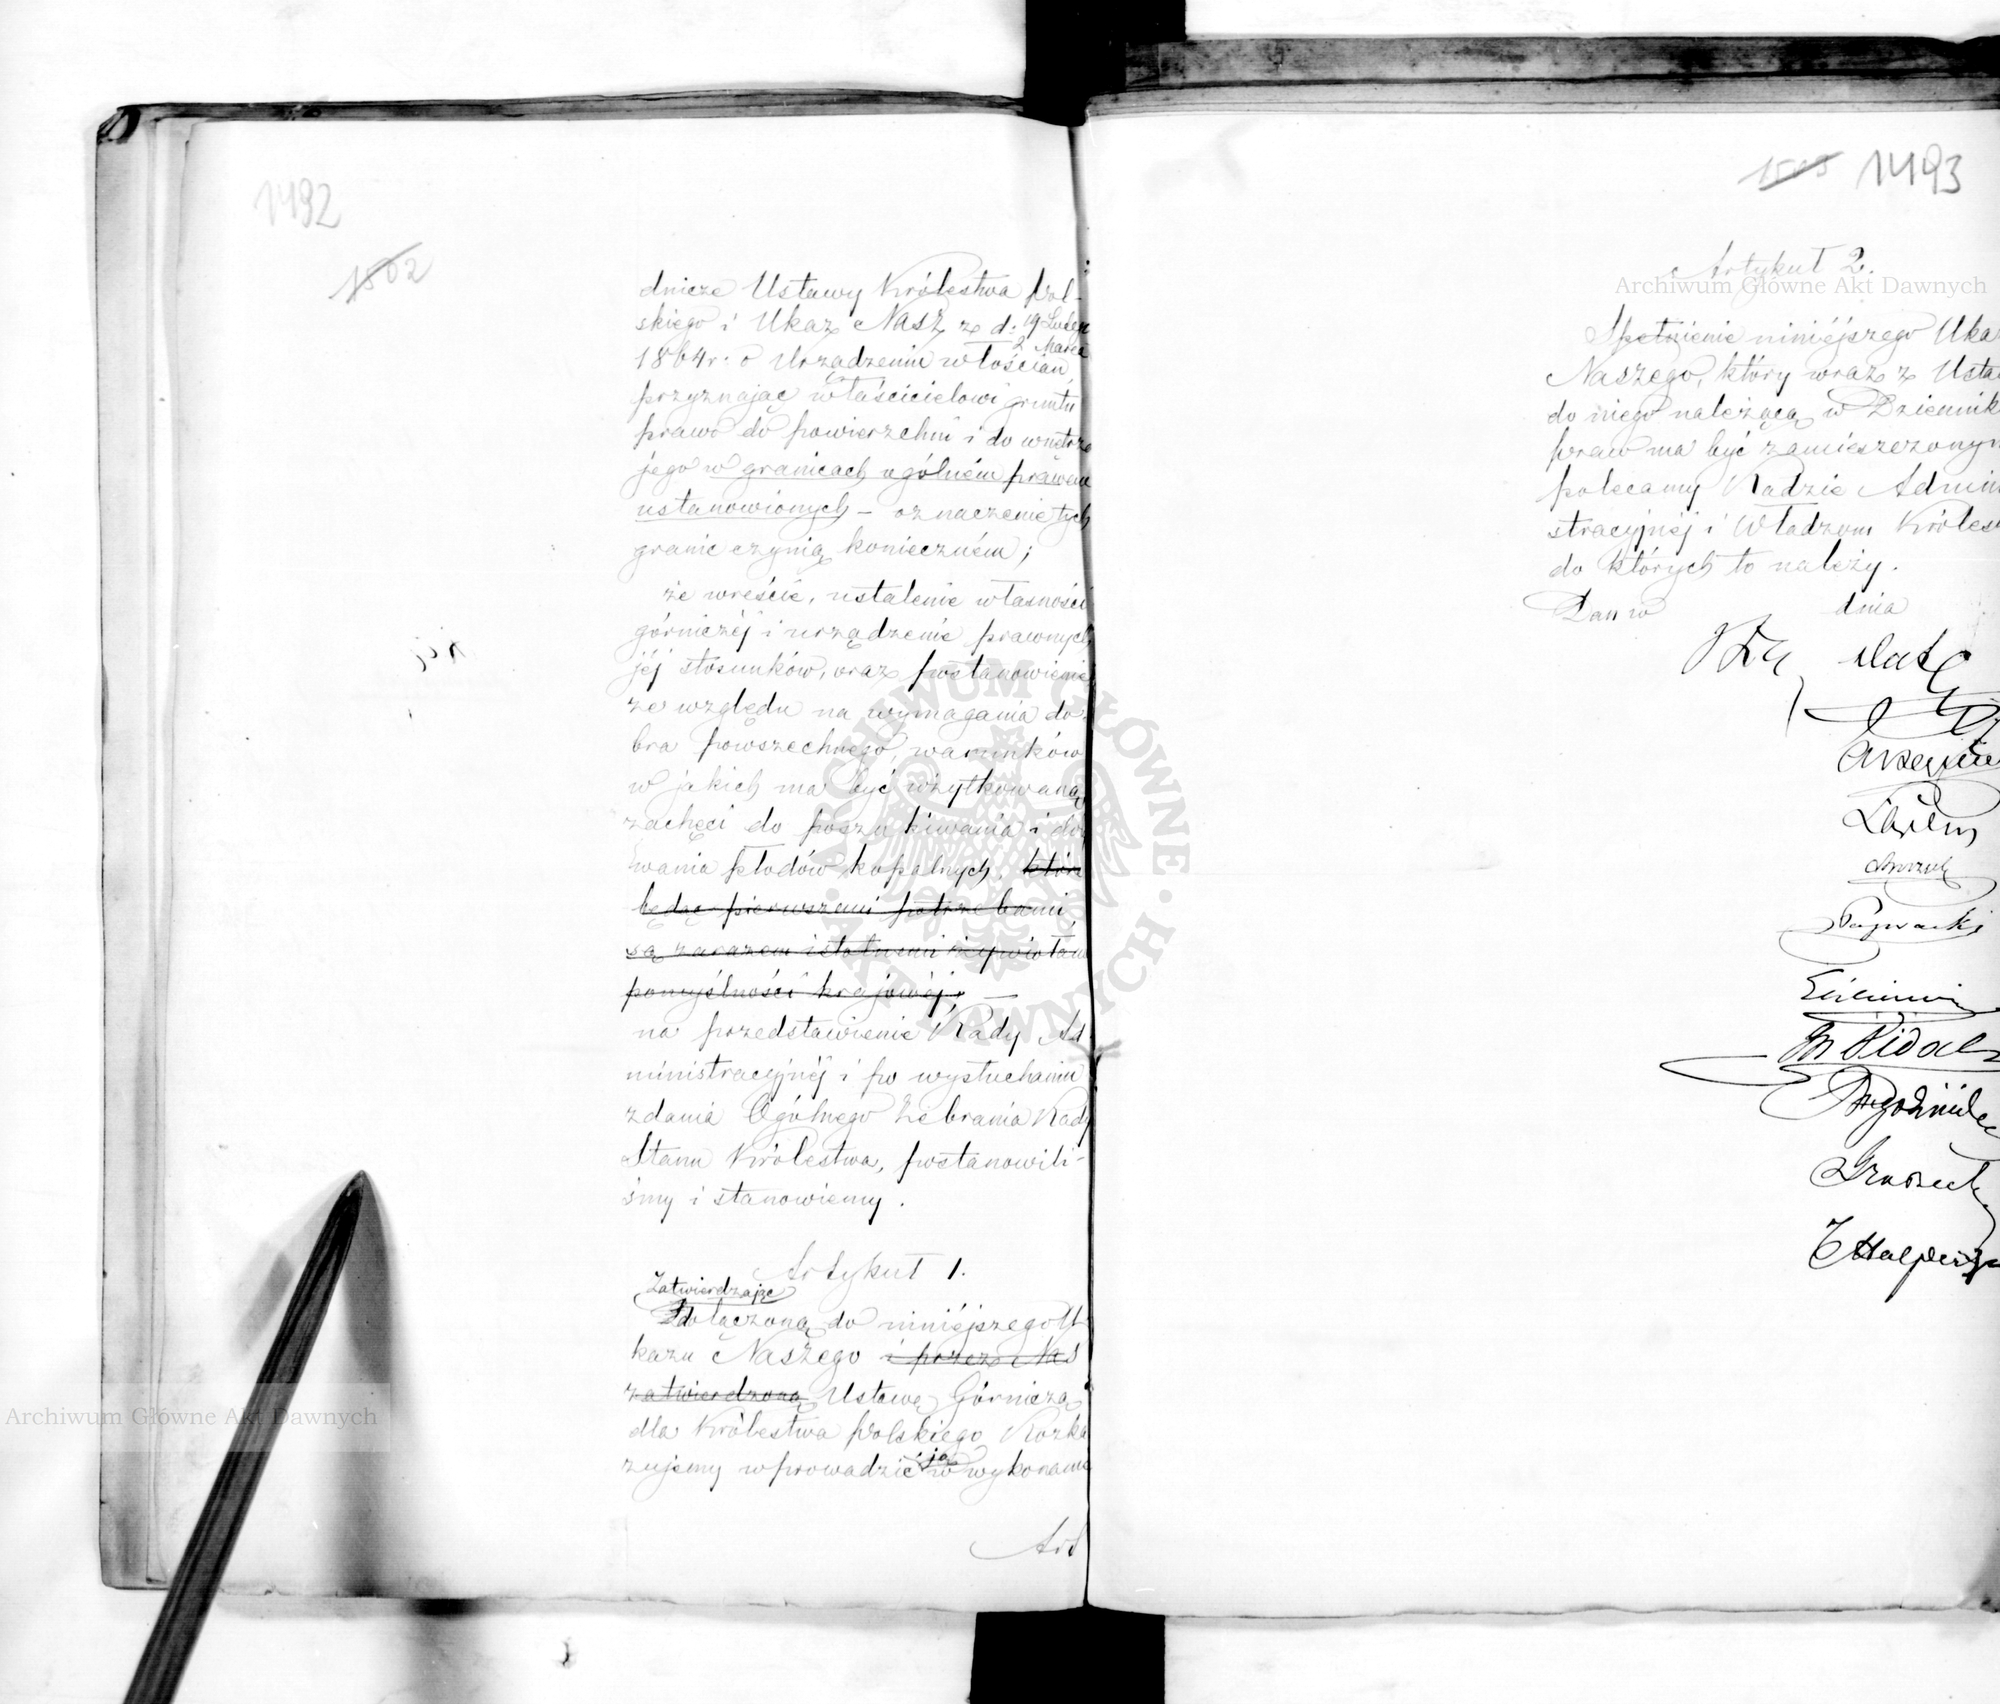 1492
1502
dnicze Ustawy Królestwa Pol-
skiego i Ukaz Nasz z d: 19 Lutego
2 Marca
1864 r. o Urządzeniu włościan,
przyznając właścicielowi gruntu
prawo do powierzchni i do wnętrza
jego w granicach ogólném prawem
ustanowionych – oznaczenie tych
granic czynią konieczném;
że wreście, ustalenie własności
górniczéj i urządzenie prawnych
jéj stosunków, oraz postanowienie
ze względu na wymagania do-
bra powszechnego, warunków
w jakich ma być użytkowaną
zachęci do poszukiwania i do
wania płodów kopalnych, któr
będąc pierwszemi potrzebami,
są zarazem istotnemi żywiołam
pomyślności krajowéj; —
na przedstawienie Rady Ad
ministracyjnéj i po wysłuchaniu
zdania Ogólnego Zebrania Rady
Stanu Królestwa, postanowili-
śmy i stanowiemy.
Artykuł 1.
Zatwierdzając
dołączoną do niniéjszego U-
kazu Naszego i przez Nas
zatwierdzoną Ustawę Górniczą
dla Królestwa Polskiego Rozka
zujemy wprowadzić ją w wykonanie
Art
1493
Artykuł 2.
Spełnienie niniéjszego Uka
Naszego, który wraz z Usta
do niego należącą w Dzienniku
praw ma być zamieszczonym
polecamy Radzie Admini
stracyjnéj i Władzom Króles
do których to należy.
Dan w dnia
Archiwum Główne Akt Dawnych
Archiwum Główne Akt Dawnych
ARCHIWUM GŁÓWNE AKT DAWNYCH